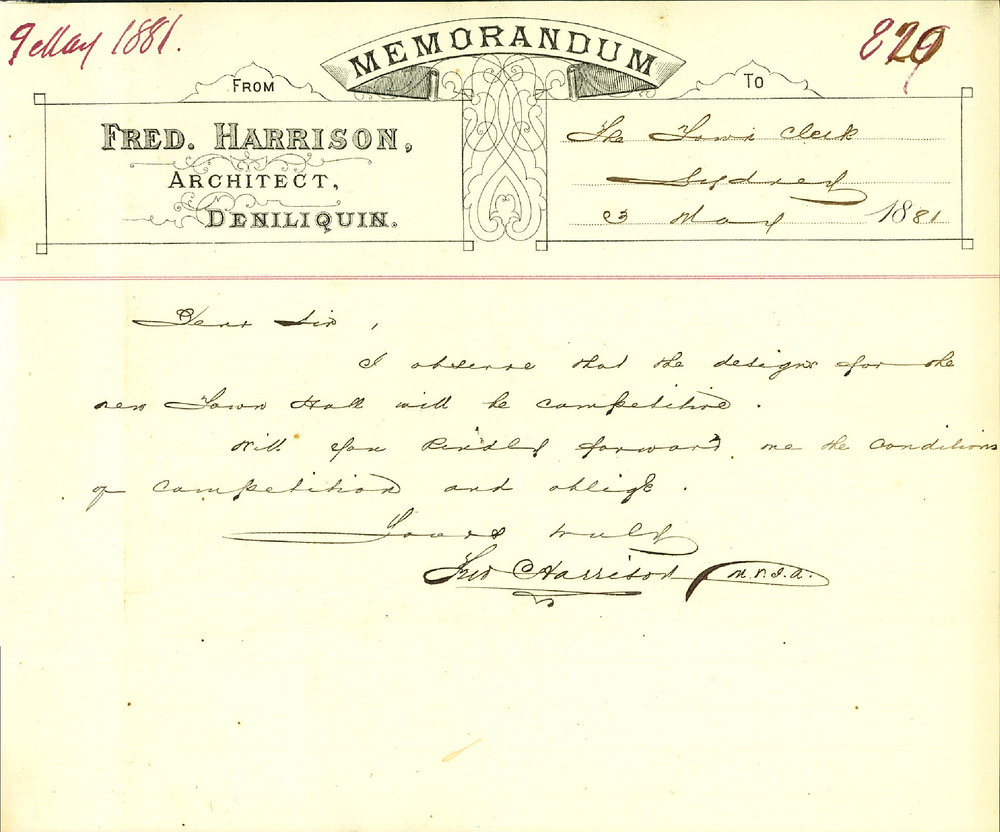 9 May 1881.
MEMORANDUM
FROM
FRED. HARRISON,
ARCHITECT,
DENILIQUIN.
TO
The Town Clerk
Sydney
May 1881
Dear Sir,
I observe that the designs for the
new Town Hall will be competitive.
Will you kindly forward me the conditions
of competition and oblige.
Yours truly
Fred Harrison